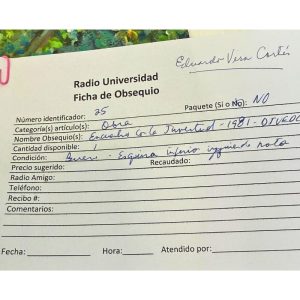 Eduardo Vera Cortés
Radio Universidad
Ficha de Obsequio
Número identificador: 25
Paquete (Si o No): NO
Categoría(s) artículo(s): Obra
Nombre Obsequio(s): Juventud - 1981 -
Cantidad disponible: 1
Condición: Bueno - Esquina inferior izquierda rota
Precio sugerido: Recaudado:
Radio Amigo:
Teléfono:
Recibo #:
Comentarios:
Fecha: Hora: Atendido por: